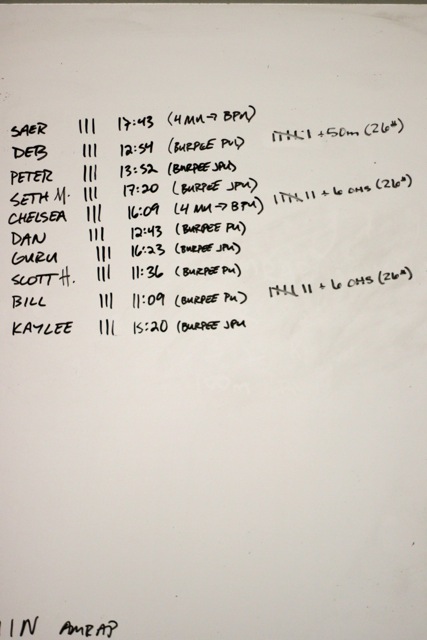 SAER ||| 17:43 (4 MU → BPU)
DEB ||| 12:54 (BURPEE PU)
PETER ||| 13:52 (BURPEE JPU)
SETH M. ||| 17:20 (BURPEE JPU)
CHELSEA ||| 16:09 (4 MU → BPU)
DAN ||| 12:43 (BURPEE PU)
GURU ||| 16:23 (BURPEE JPU)
SCOTT H. ||| 11:36 (BURPEE PU)
BILL ||| 11:09 (BURPEE PU)
KAYLEE ||| 15:20 (BURPEE JPU
+50m (26#)
+ 6 OHS (26#)
+ 6 OHS (26#)
IN AMRAP